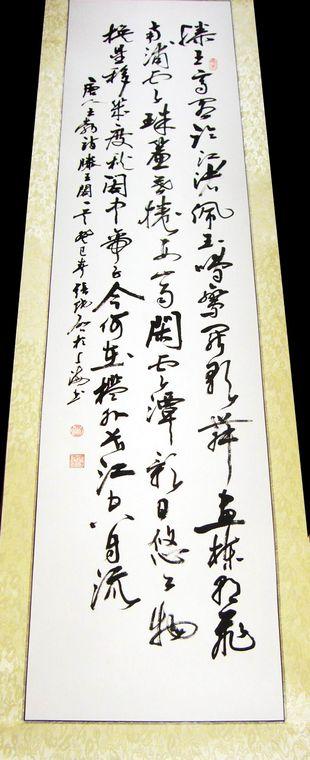 滕王高阁临江渚佩玉鸣鸾罢歌舞画栋朝飞
南浦云珠簾暮捲西山雨閑云潭影日悠悠物
换星移几度秋阁中帝子今何在槛外长江空自流
唐人王勃诗滕王阁一首癸巳年於上海书